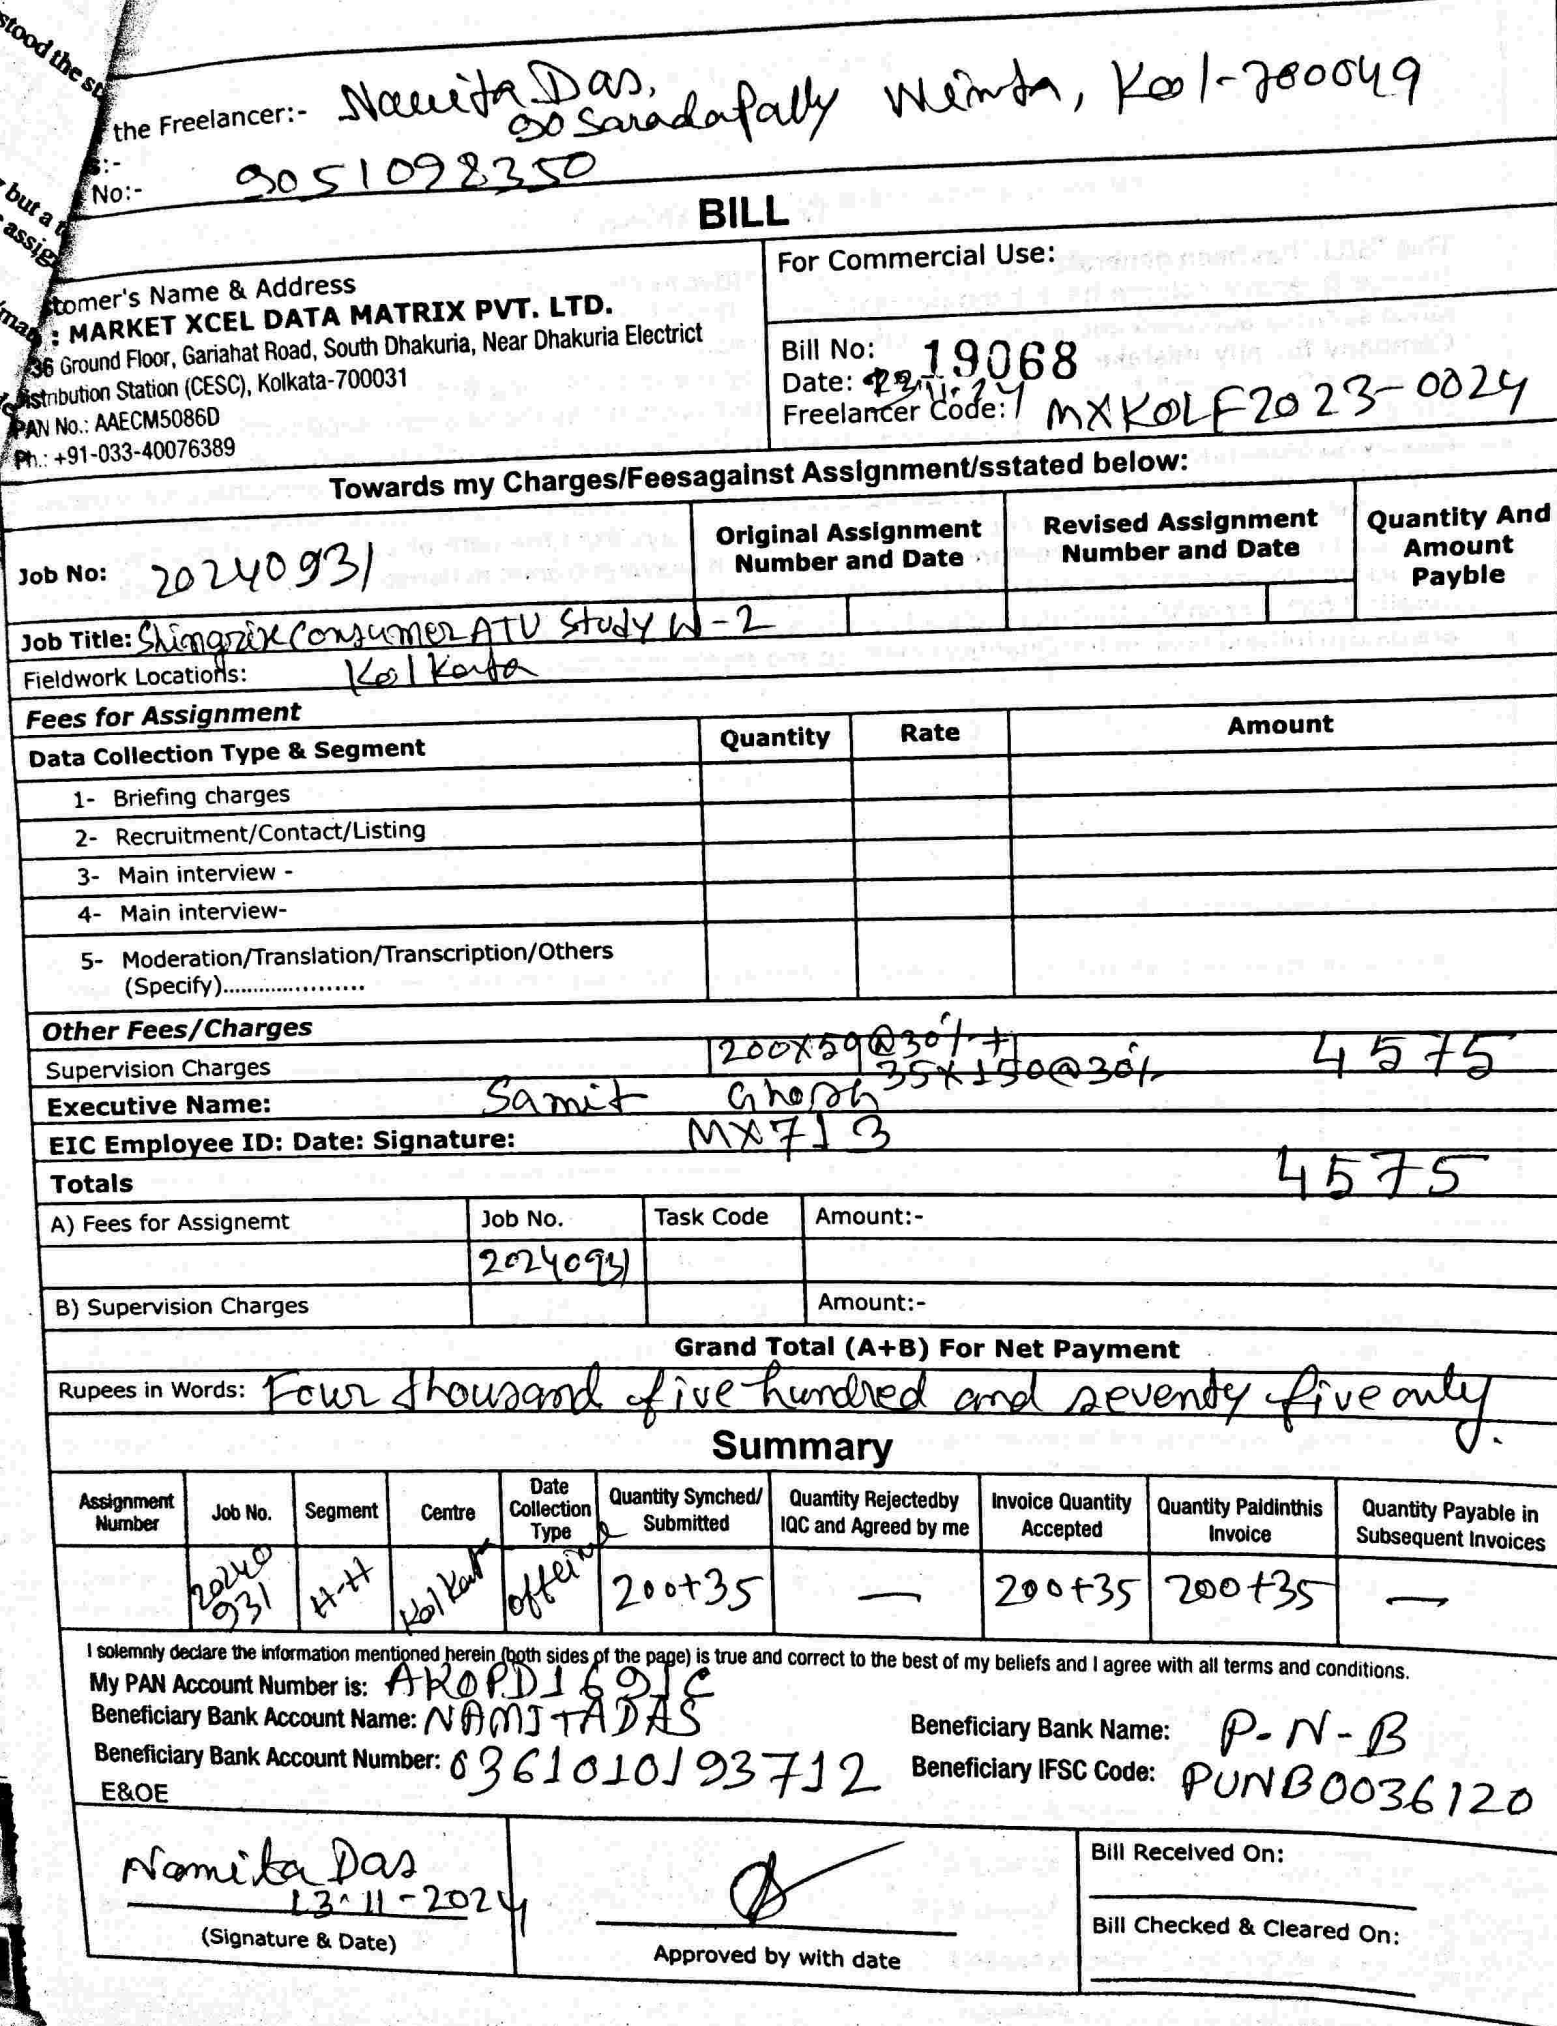 stood the st
the Freelancer:- Namita Das,
90 Saradapally Nimta, Kol-700049
s:-
No:- 9051098350
but a t
assig
BILL
For Commercial Use:
stomer's Name & Address
: MARKET XCEL DATA MATRIX PVT. LTD.
36 Ground Floor, Gariahat Road, South Dhakuria, Near Dhakuria Electrict
istribution Station (CESC), Kolkata-700031
PAN No.: AAECM5086D
Ph.: +91-033-40076389
Bill No: 19068
Date: 11.24
Freelancer Code: MXKOLF2023-0024
Towards my Charges/Feesagainst Assignment/sstated below:
Job No: 20240931
Original Assignment Number and Date
Revised Assignment Number and Date
Quantity And Amount Payble
Job Title: Shingrix Consumer ATU Study W-2
Fieldwork Locations: Kolkata
Fees for Assignment
Data Collection Type & Segment Quantity Rate Amount
1- Briefing charges
2- Recruitment/Contact/Listing
3- Main interview -
4- Main interview-
5- Moderation/Translation/Transcription/Others
(Specify).....................
Other Fees/Charges
Supervision Charges 200X50@30%+ 35X150@30% 4575
Executive Name: Samit Ghosh
EIC Employee ID: Date: Signature: MX713
Totals 4575
A) Fees for Assignemt Job No. Task Code Amount:-
20240931
B) Supervision Charges Amount:-
Grand Total (A+B) For Net Payment
Rupees in Words: Four thousand five hundred and seventy five only.
Summary
Assignment Number
Job No.
Segment
Centre
Date Collection Type
Quantity Synched/ Submitted
Quantity Rejectedby IQC and Agreed by me
Invoice Quantity Accepted
Quantity Paidinthis Invoice
Quantity Payable in Subsequent Invoices
20240931 H-H Kolkata offline 200+35 — 200+35 200+35 —
I solemnly declare the information mentioned herein (both sides of the page) is true and correct to the best of my beliefs and I agree with all terms and conditions.
My PAN Account Number is: AKOPD1691C
Beneficiary Bank Account Name: NAMITADAS
Beneficiary Bank Name: P-N-B
Beneficiary Bank Account Number: 0361010193712
Beneficiary IFSC Code: PUNB0036120
E&OE
Namita Das
13-11-2024
(Signature & Date)
Approved by with date
Bill Received On:
Bill Checked & Cleared On: